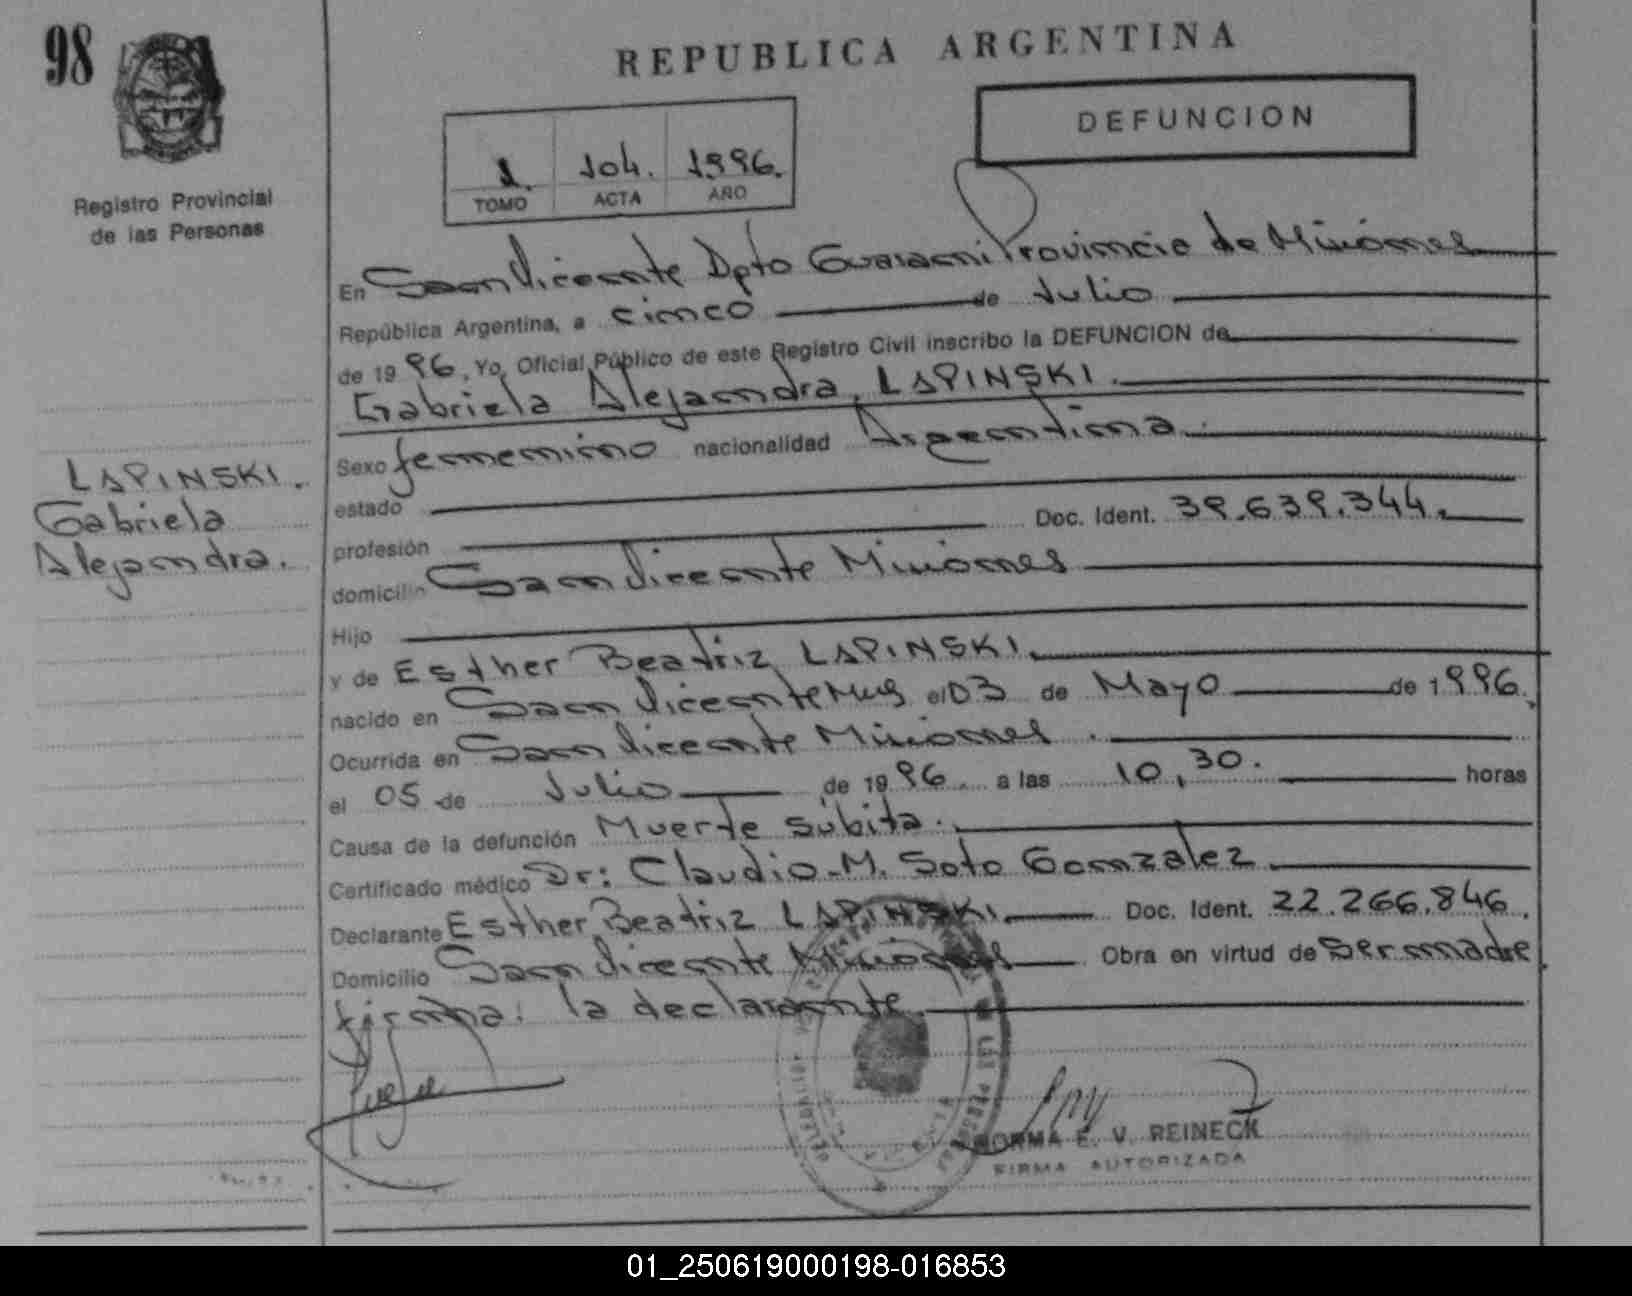 98
REPUBLICA ARGENTINA
DEFUNCION
1. 104. 1996.
TOMO ACTA AÑO
Registro Provincial
de las Personas
En San Vicente Dpto Guaraní Provincia de Misiones
República Argentina, a cinco de Julio
de 1996. Yo, Oficial Público de este Registro Civil inscribo la DEFUNCION de
Gabriela Alejandra, LAPINSKI.
LAPINSKI.
Gabriela
Alejandra.
Sexo femenino nacionalidad Argentina.
estado
profesión Doc. Ident. 39.639.344.
domicilio San Vicente Misiones
Hijo
y de Esther Beatriz LAPINSKI.
nacido en San Vicente Mnes el 03 de Mayo de 1996.
Ocurrida en San Vicente Misiones.
el 05 de Julio de 1996. a las 10,30. horas
Causa de la defunción Muerte súbita.
Certificado médico Dr: Claudio M. Soto Gonzalez
Declarante Esther Beatriz LAPINSKI Doc. Ident. 22.266.846.
Domicilio San Vicente Misiones Obra en virtud de Ser madre
firma: la declarante.
NORMA E. V. REINECK
FIRMA AUTORIZADA
01_250619000198-016853